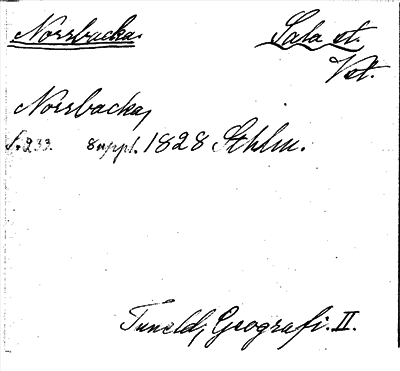 Norrbacka. Sala st.
Vst.
Norrbacka,
s. 233. suppl. 1828 Sthlm.
Tuneld, Geografi. II.